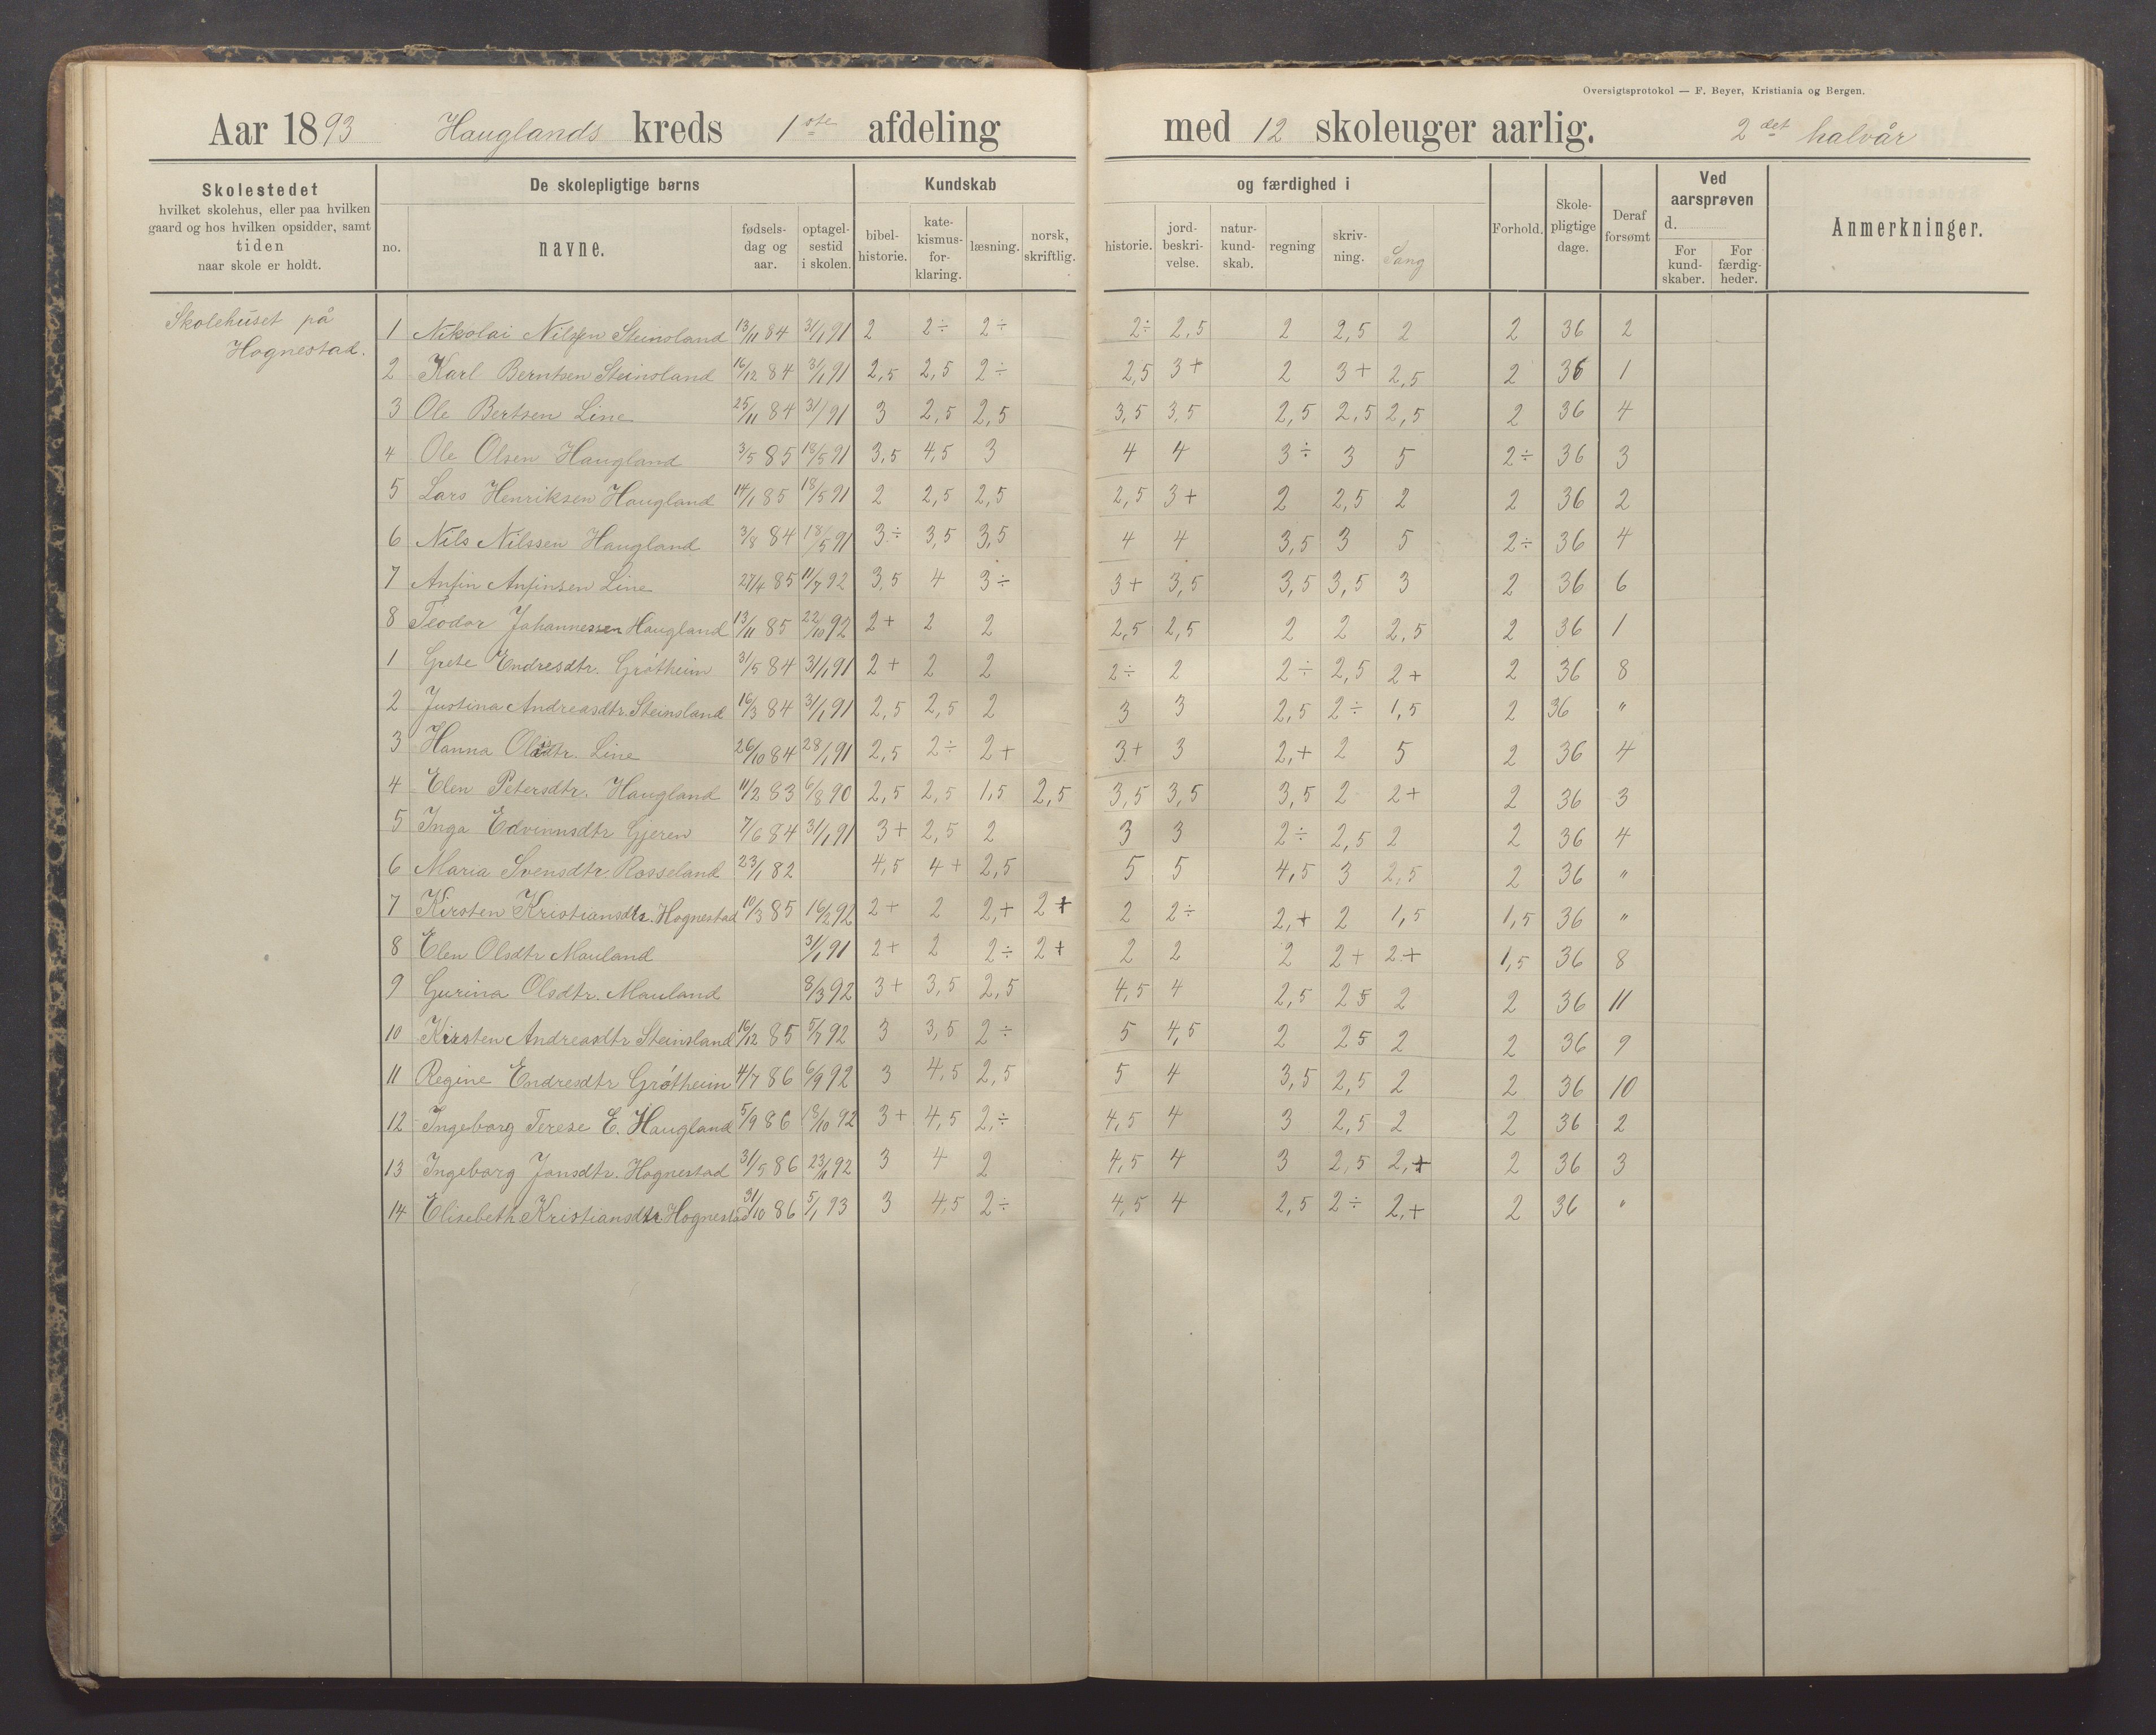 Oversigtsprotokol — F. Beyer, Kristiania og Bergen.
Aar 1893 Hauglands kreds 1ste afdeling med 12 skoleuger aarlig. 2det halvår
Skolestedet hvilket skolehus, eller paa hvilken gaard og hos hvilken opsidder, samt tiden naar skole er holdt.
De skolepligtige børns
no. navne. fødselsdag og aar. optagelsestid i skolen.
Kundskab og færdighed i
bibelhistorie. katekismusforklaring. læsning. norsk, skriftlig. historie. jordbeskrivelse. naturkundskab. regning skrivning. Sang
Forhold. Skolepligtige dage. Deraf forsømt
Ved aarsprøven d.
For kundskaber. For færdigheder.
Anmerkninger.
Skolehuset på
Hognestad.
1 Nikolai Nilsen Steinsland 13/11 84 31/1 91 2 2÷ 2÷ 2÷ 2,5 2 2,5 2 2 36 2
2 Karl Berntsen Steinsland 16/12 84 31/1 91 2,5 2,5 2÷ 2,5 3+ 2 3+ 2,5 2 36 1
3 Ole Bertsen Line 25/11 84 31/ 91 3 2,5 2,5 3,5 3,5 2,5 2,5 2,5 2 36 4
4 Ole Olsen Haugland 3/5 85 18/5 91 3,5 4,5 3 4 4 3÷ 3 5 2÷ 36 3
5 Lars Henriksen Haugland 14/1 85 18/5 91 2 2,5 2,5 2,5 3+ 2 2,5 2 2 36 2
6 Nils Nilssen Haugland 3/8 84 18/5 91 3÷ 3,5 3,5 4 4 3,5 3 5 2÷ 36 4
7 Anfin Anfinsen Line 27/4 85 11/7 92 3,5 4 3÷ 3+ 3,5 3,5 3,5 3 2 36 6
8 Teodor Johannessen Haugland 13/11 85 22/10 92 2+ 2 2 2,5 2,5 2 2 2,5 2 36 1
1 Grete Endresdtr. Grótheim 31/5 84 31/1 91 2+ 2 2 2÷ 2 2÷ 2,5 2+ 2 36 8
2 Justina Andreasdtr. Steinsland 16/3 84 31/1 91 2,5 2,5 2 3 3 2,5 2÷ 1,5 2 36 "
3 Hanna Olsdtr. Line 26/10 84 28/1 91 2,5 2÷ 2+ 3+ 3 2,+ 2 5 2 36 4
4 Elen Petersdtr. Haugland 11/2 83 6/8 90 2,5 2,5 1,5 2,5 3,5 3,5 3,5 2 2+ 2 36 3
5 Inga Edvinnsdtr Gjeren 7/6 84 31/1 91 3+ 2,5 2 3 3 2÷ 2,5 2 2 36 4
6 Maria Svensdtr. Rosseland 23/1 82 4,5 4+ 2,5 5 5 4,5 3 2,5 2 36 "
7 Kirsten Kristiansdtr. Hognestad 10/3 85 16/2 92 2+ 2 2,+ 2+ 2 2÷ 2,+ 2 1,5 1,5 36 "
8 Elen Olsdtr Mauland 31/1 91 2+ 2 2÷ 2+ 2 2 2 2+ 2+ 1,5 36 8
9 Gurina Olsdtr. Mauland 8/3 92 3+ 3,5 2,5 4,5 4 2,5 25 2 2 36 11
10 Kirsten Andreasdtr Steinsland 16/12 85 5/7 92 3 3,5 2÷ 5 4,5 2 25 2 2 36 9
11 Regine Endresdtr Grótheim 4/7 86 6/9 92 3 4,5 2,5 5 4 3,5 2,5 2 2 36 10
12 Ingeborg Terese E. Haugland 5/9 86 18/10 92 3+ 4,5 2,÷ 4,5 4 3 2,5 2 2 36 2
13 Ingeborg Jonsdtr. Hognestad 31/5 86 23/11 92 3 4 2 4,5 4 3 2,5 2,+ 2 36 3
14 Elisebeth Kristiansdtr Hognestad 31/10 86 5/1 93 3 4,5 2÷ 4,5 4 2,5 2÷ 2,+ 2 36 "